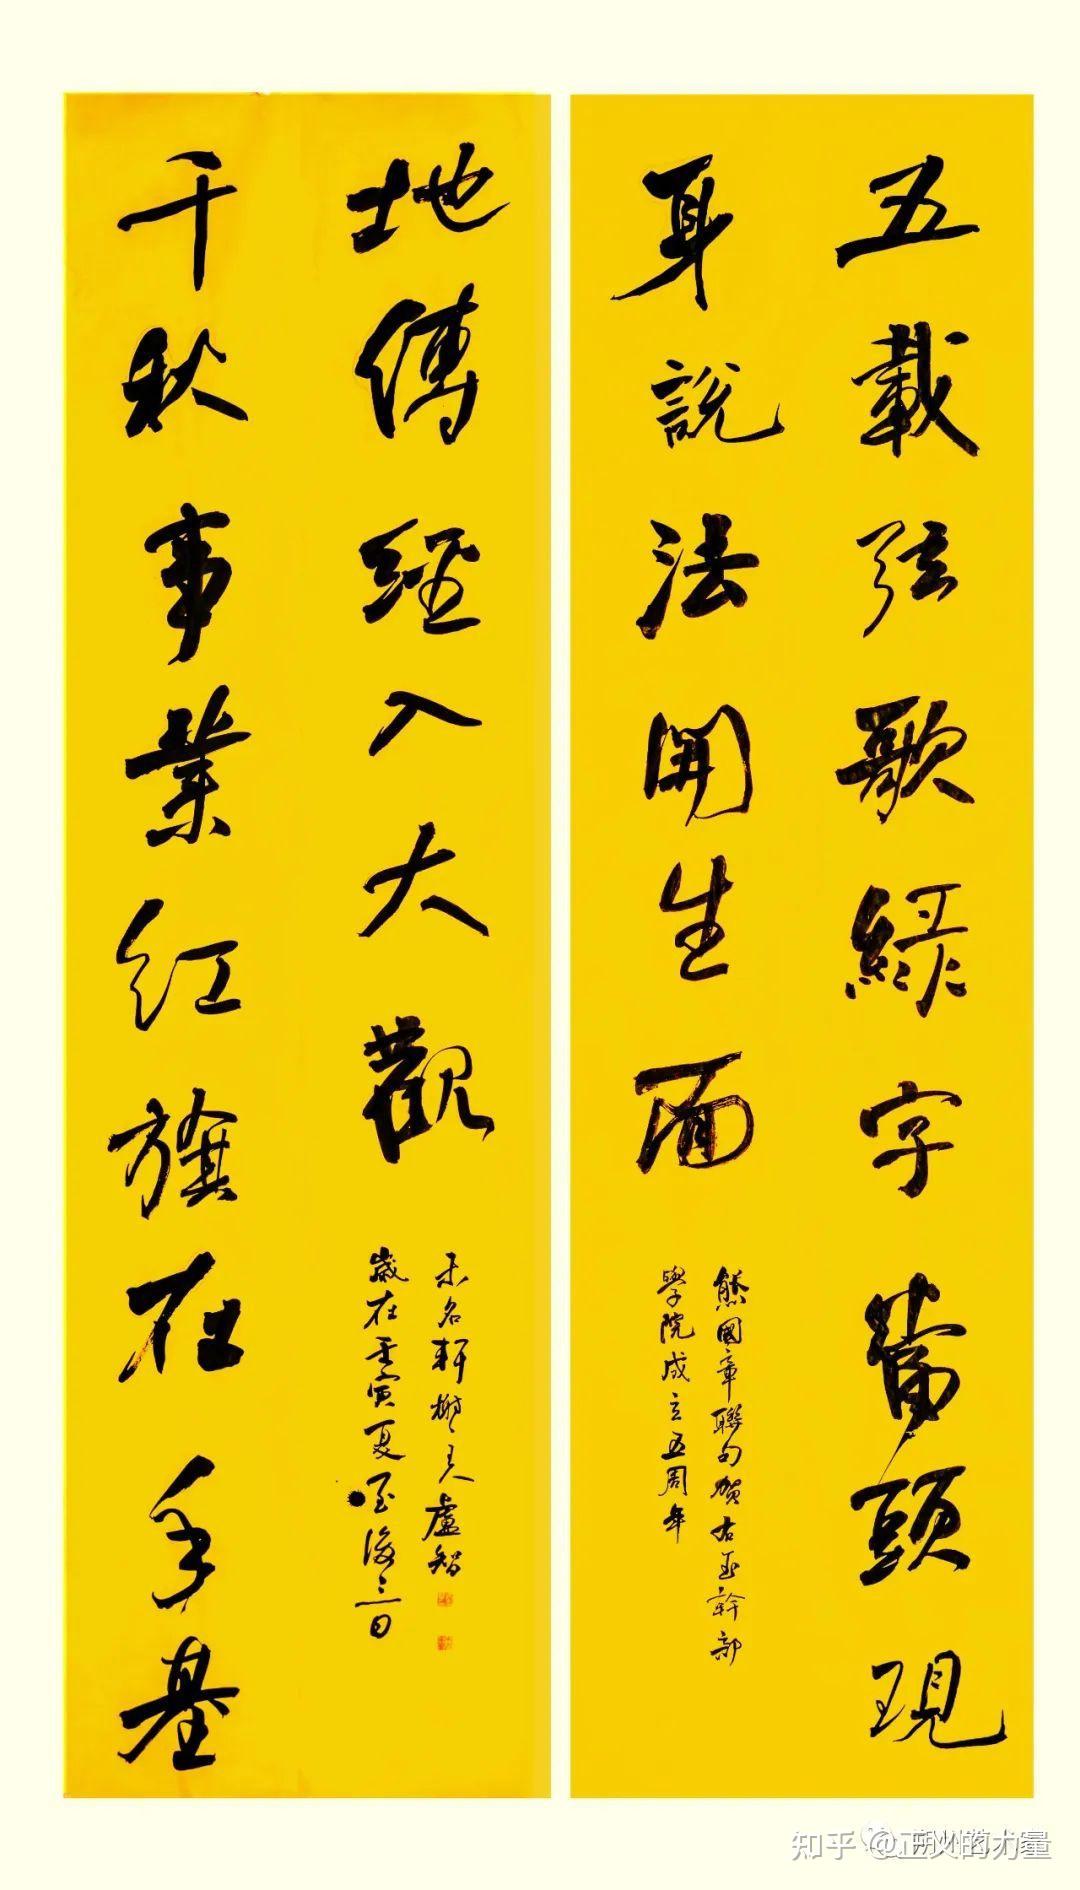 五載弦歌綠字當頭現
身說法開生面
熊國章聯句賀右玉幹部
學院成立五周年
千秋事業紅旗在手基
地傳經入大觀
歲在壬寅夏至後三日
未名軒 盧智
知乎 @正义的力量